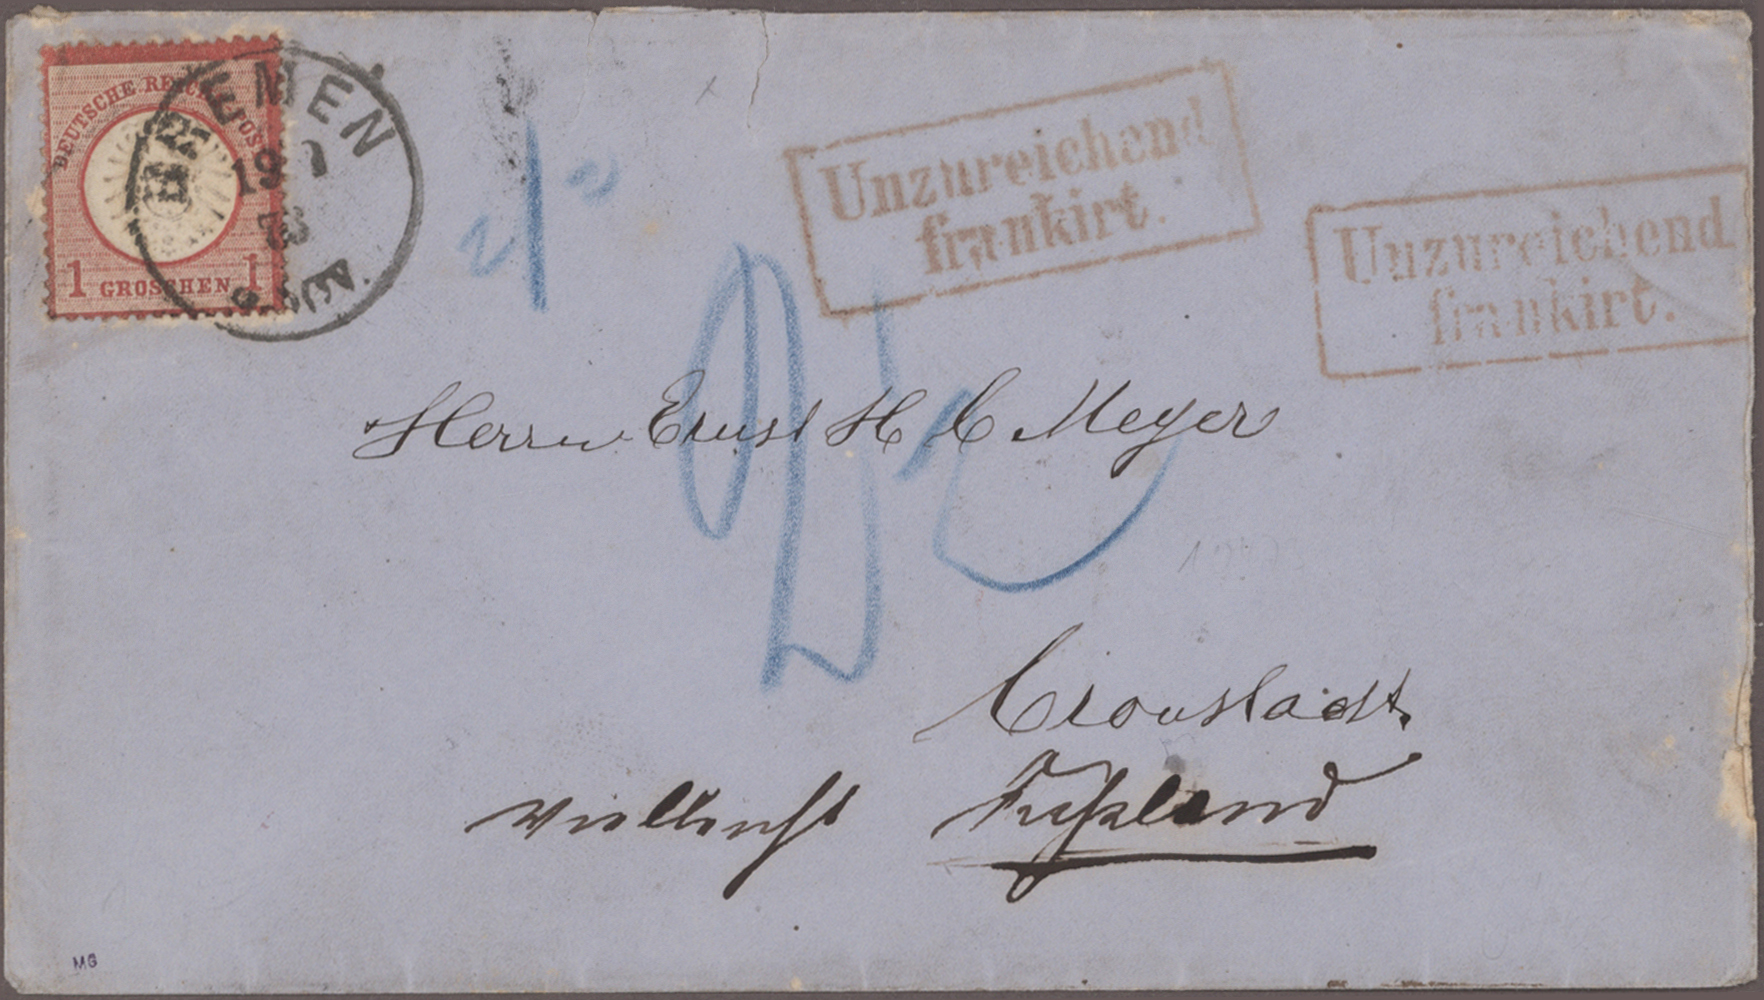 DEUTSCHE REICHS POST
1 GROSCHEN 1
BREMEN
19 1
73
Unzureichend
frankirt.
Unzureichend
frankirt.
Herrn Ernst H C Meyer
Cronstadt.
vielleicht Rußland
MG